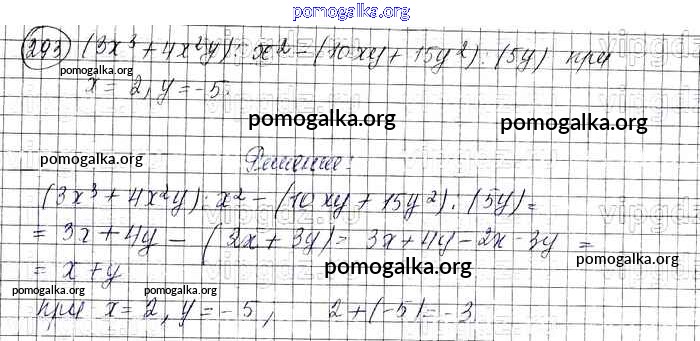 pomogalka.org
293) (3x³ + 4x²y) : x² - (10xy + 15y²) : (5y) при
pomogalka.org
x = 2, y = -5.
pomogalka.org
pomogalka.org
Решение:
(3x³ + 4x²y) : x² - (10xy + 15y²) : (5y) =
= 3x + 4y - (2x + 3y) = 3x + 4y - 2x - 3y =
= x + y
pomogalka.org
pomogalka.org
pomogalka.org
pomogalka.org
при x = 2, y = -5, 2 + (-5) = -3